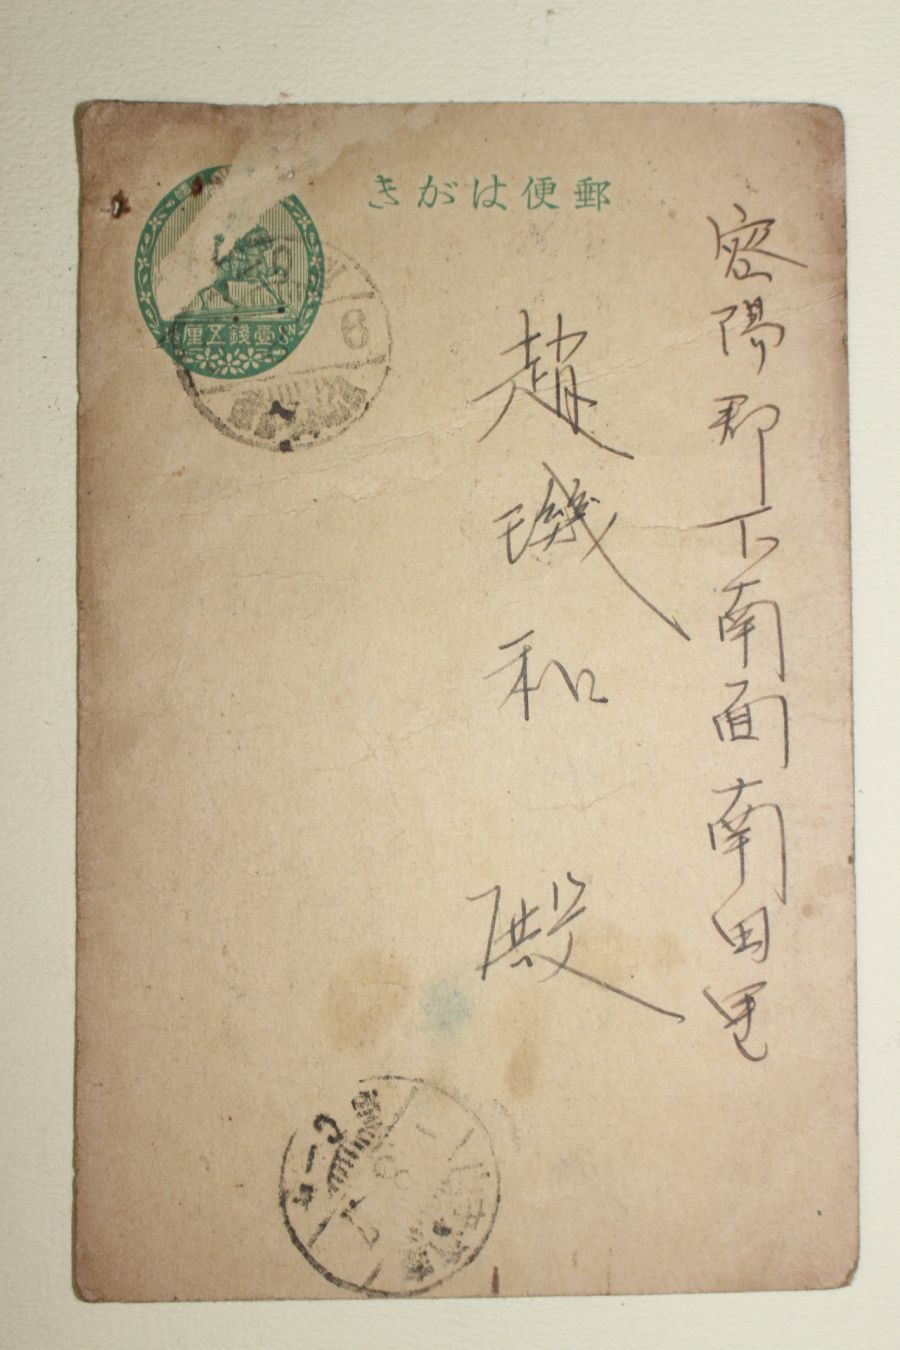 郵便はがき
壹錢五厘
密陽郡下南面南田里
趙璣和 殿